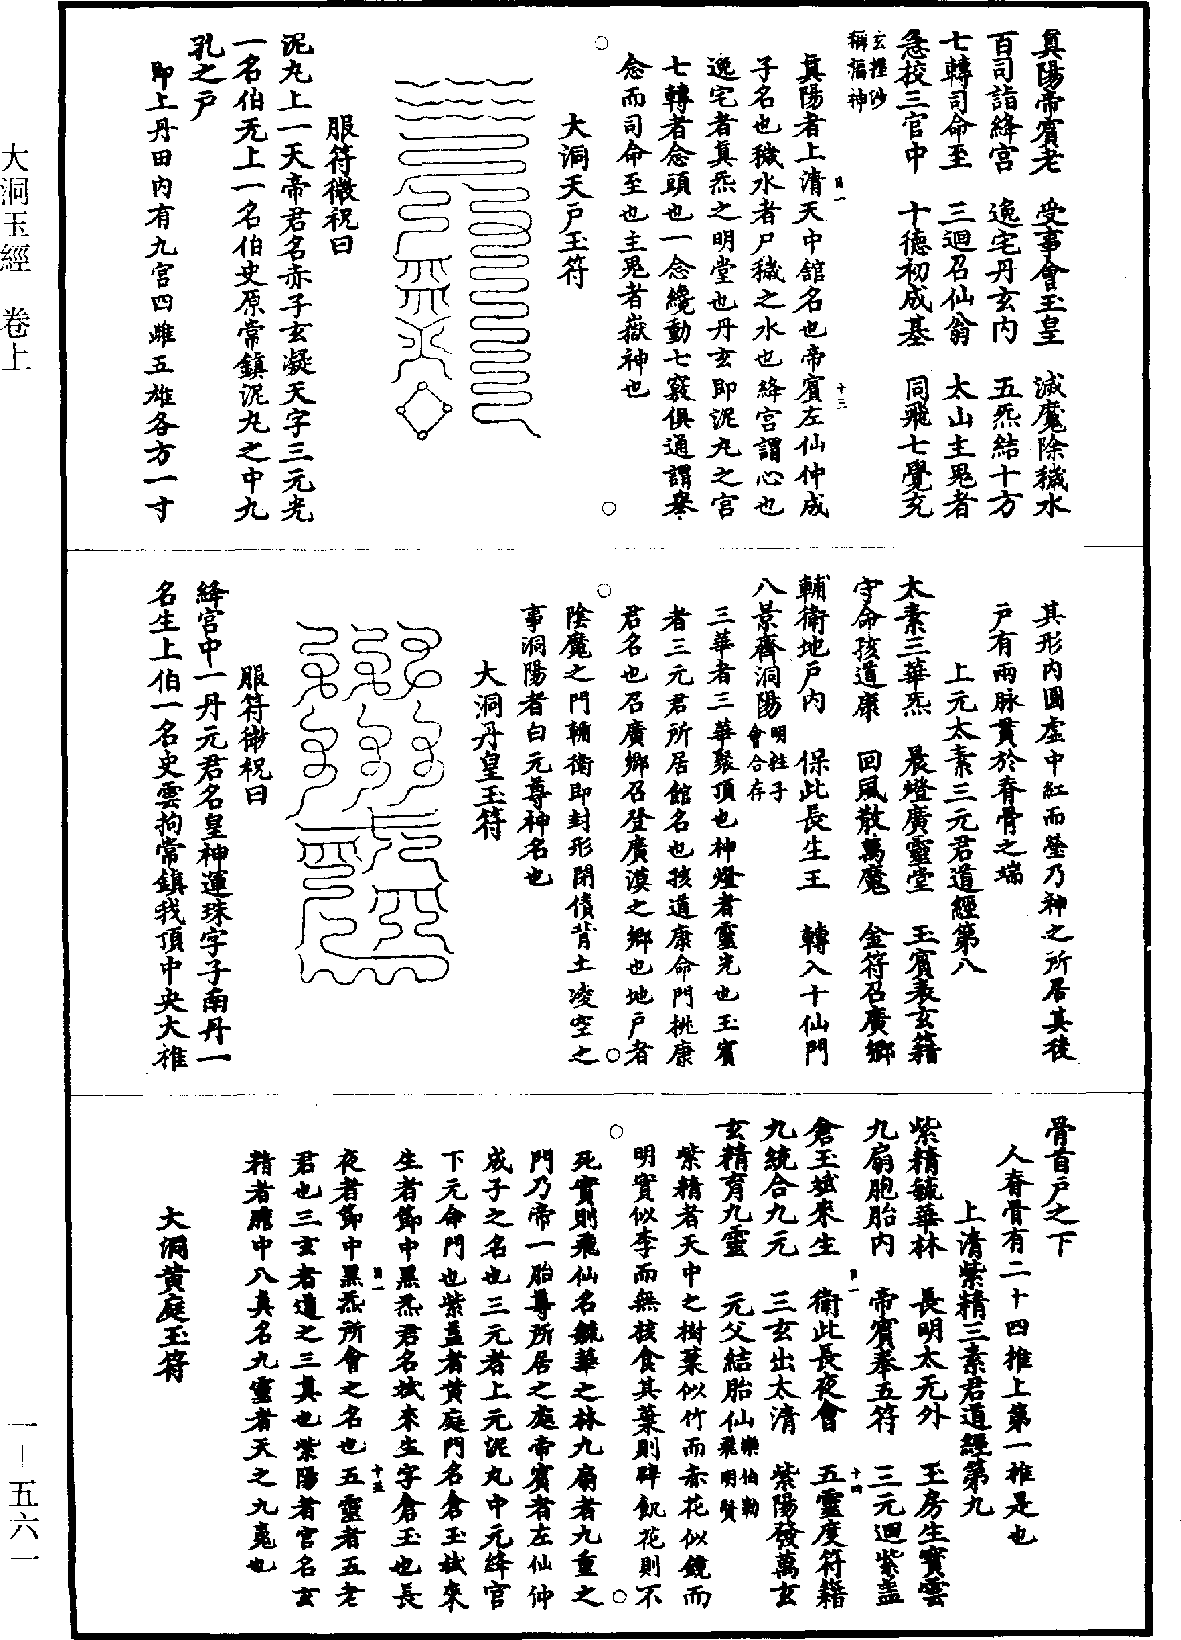 大洞玉經　卷上
眞陽帝賓老　受事會玉皇　滅魔除穢水
百司詣絳宮　逸宅丹玄內　五炁結十方
七轉司命至　三迴召仙翁　太山主㞧者
急校三官中　十德初成基　同飛七覺充
眞陽者上清天中舘名也帝賓左仙仲成
子名也穢水者尸穢之水也絳宮謂心也
逸宅者眞炁之明堂也丹玄即泥丸之宮
七轉者念頭也一念纔動七竅俱通謂舉
念而司命至也主㞧者嶽神也
大洞天戶玉符
服符微祝曰
泥丸上一天帝君名赤子玄凝天字三元光
一名伯无上一名伯史原常鎮泥丸之中九
孔之戶
即上丹田內有九宮四雌五雄各方一寸
其形內圓虛中紅而瑩乃神之所居其後
戶有兩脉貫於脊骨之端
上元太素三元君道經第八
太素三華炁　晨燈廣靈堂　玉賓表玄籍
守命孩道康　回風散萬魔　金符召廣鄉
輔衛地戶內　保此長生王　轉入十仙門
八景齊洞陽
三華者三華聚頂也神燈者靈光也玉賓
者三元君所居館名也孩道康命門桃康
君名也召廣鄉召登廣漠之鄉也地戶者
陰魔之門輔衛即封形閉債背土凌空之
事洞陽者白元尊神名也
大洞丹皇玉符
服符微祝曰
絳宮中一丹元君名皇神運珠字子南丹一
名生上伯一名史雲拘常鎮我頂中央大椎
骨首戶之下
人脊骨有二十四椎上第一椎是也
上清紫精三素君道經第九
紫精毓華林　長明太无外　玉房生寶雲
九扇胞胎內　帝賓奉五符　三元迴紫蓋
倉玉拭來生　衛此長夜會　五靈度符籍
九統合九元　三玄出太清　紫陽發萬玄
玄精育九靈　元父結胎仙
紫精者天中之樹葉似竹而赤花似鏡而
明實似李而無核食其葉則辟飢花則不
死實則飛仙名毓華之林九扇者九重之
門乃帝一胎尊所居之庭帝賓者左仙仲
成子之名也三元者上元泥丸中元絳官
下元命門也紫蓋者黃庭門名倉玉拭來
生者節中黑炁君名拭來生字倉玉也長
夜者節中黑炁所會之名也五靈者五老
君也三玄者道之三眞也紫陽者宮名玄
精者脾中八眞名九靈者天之九嵬也
大洞黃庭玉符
一—五六一